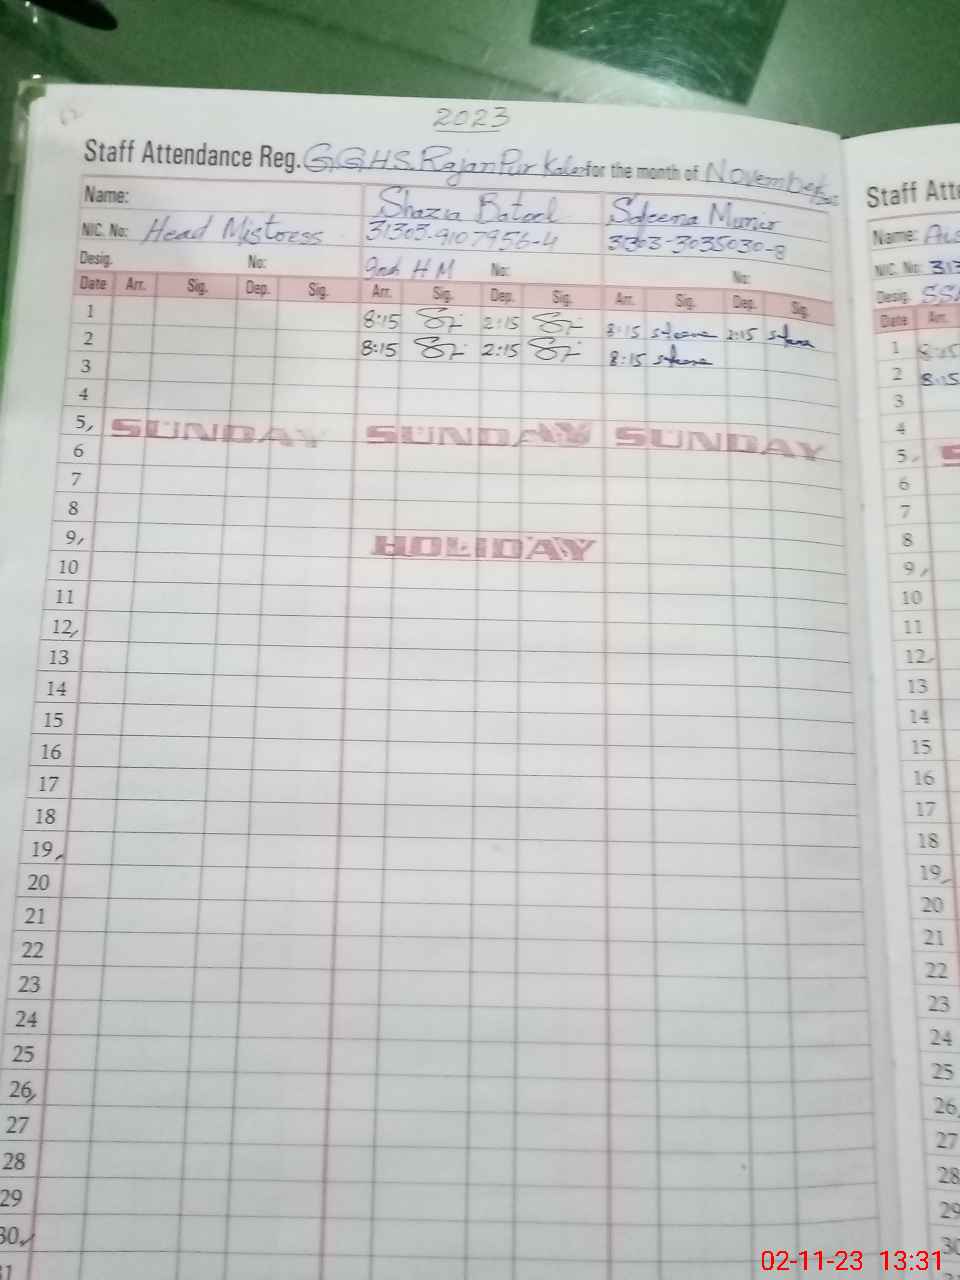 2023
Staff Attendance Reg. G.G.H.S. RajanPur Kalan for the month of November
Name: Shazia Batool Saleema Munir
NIC. No: Head Mistress 31303-9107956-4 31303-3035030-8
Desig. No: Incd HM No: No:
Date Arr. Sig. Dep. Sig. Arr. Sig. Dep. Sig. Arr. Sig. Dep. Sig.
1 8:15 2:15 8:15 2:15
2 8:15 2:15 8:15
3
4
5, SUNDAY SUNDAY SUNDAY
6
7
8
9, HOLIDAY
10
11
12,
13
14
15
16
17
18
19,
20
21
22
23
24
25
26,
27
28
29
30,
31
Staff Atte
Name:
NIC. No: 313
Desig. SS
Date Arr.
1 8:15
2 8:15
3
4
5, S
6
7
8
9,
10
11
12,
13
14
15
16
17
18
19,
20
21
22
23
24
25
26,
27
28
29
30
02-11-23 13:31